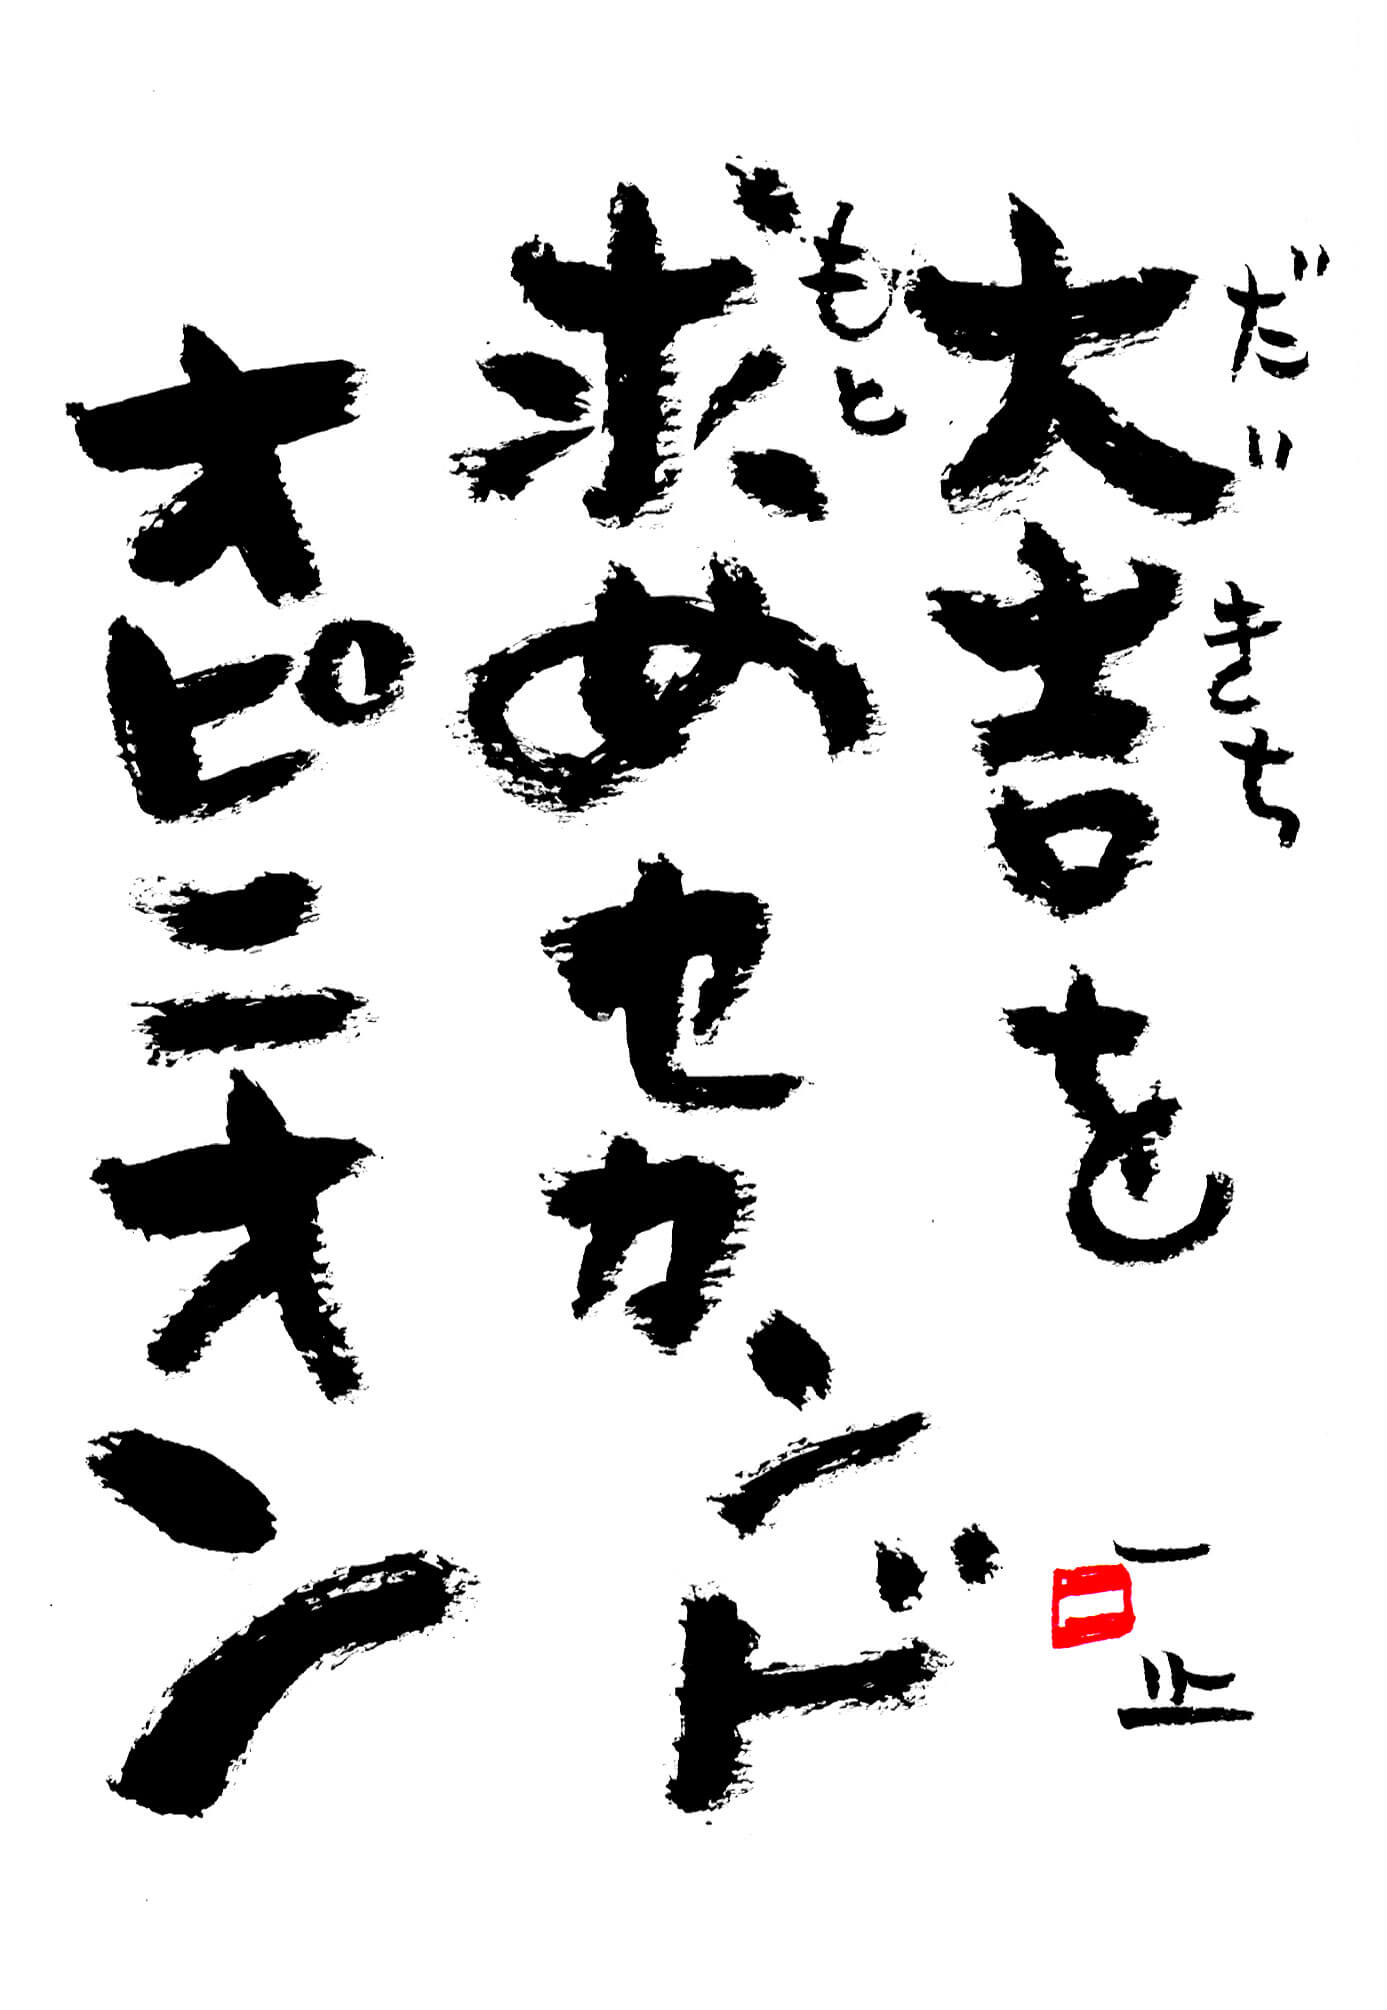 だいきち
大吉を
もと
求めセカンド
オピニオン
一止